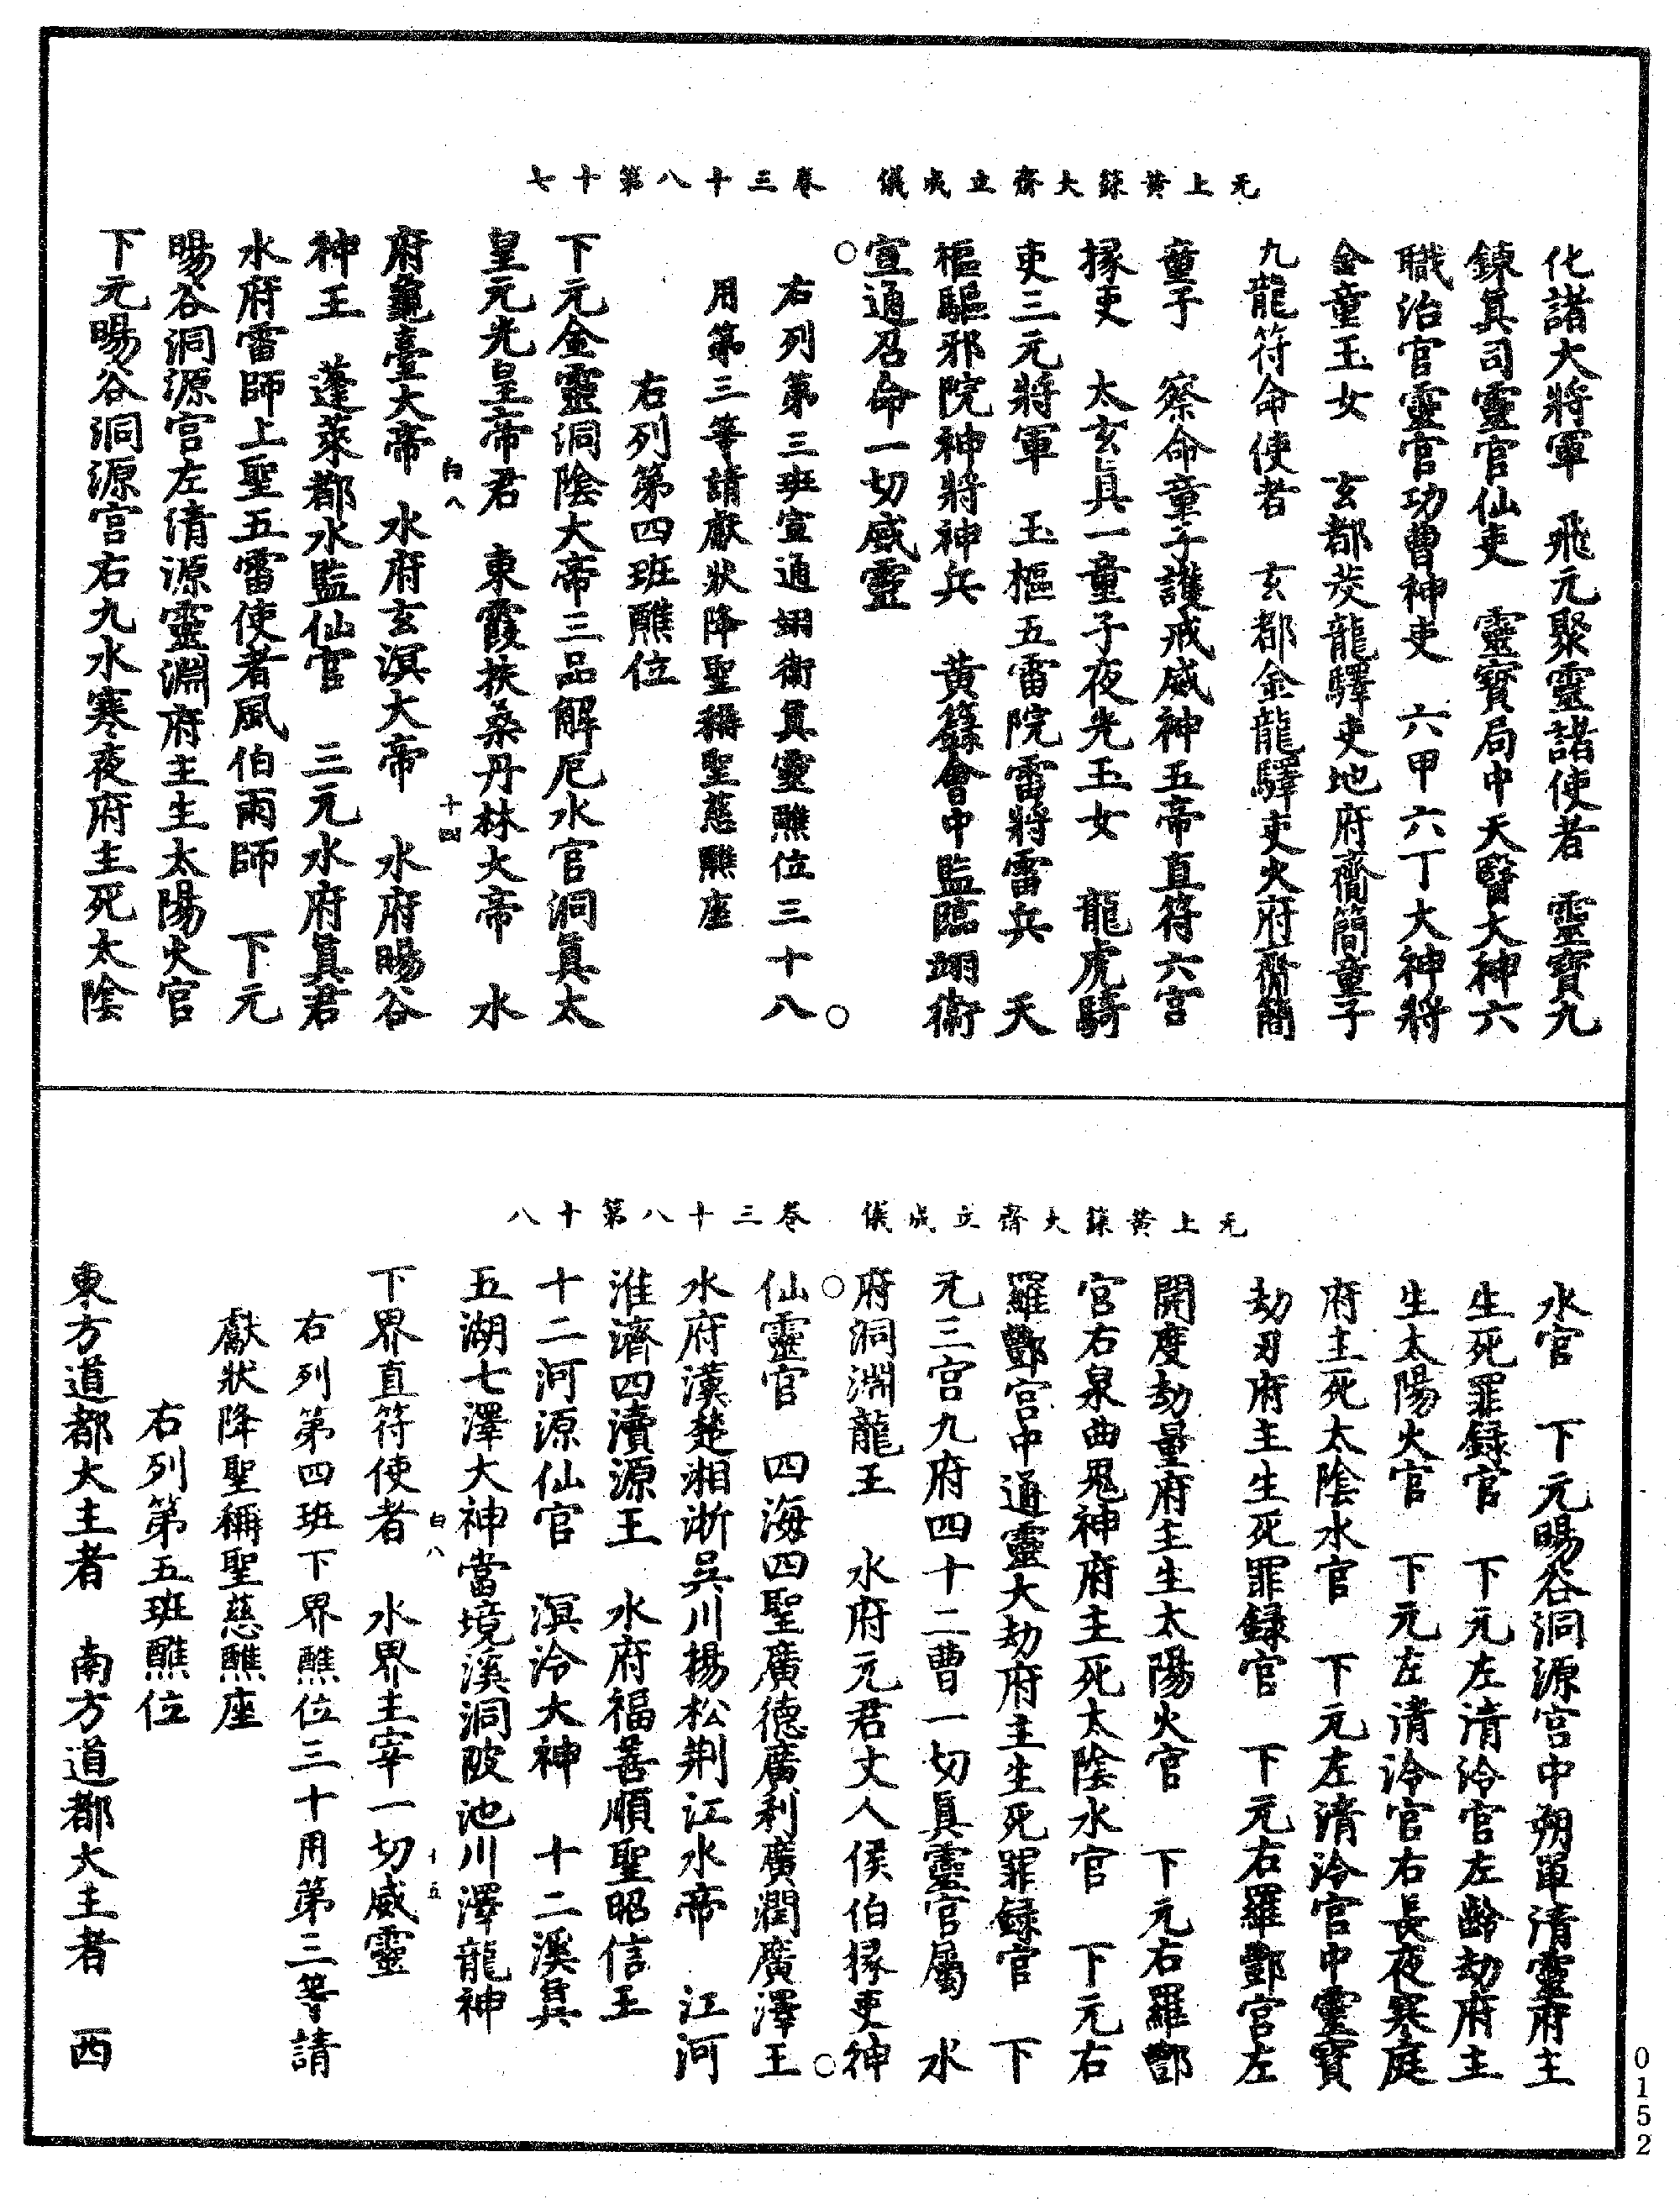 无上黃籙大齋立成儀　卷三十八第十七
化諸大將軍　飛元聚靈諸使者　靈寶九
鍊眞司靈官仙吏　靈寶局中天醫大神六
職治官靈官功曹神吏　六甲六丁大神將
金童玉女　玄都茭龍驛吏地府齎簡童子
九龍符命使者　玄都金龍驛吏火府齎簡
童子　察命童子護戒威神五帝直符六宮
掾吏　太玄眞一童子夜光玉女　龍虎騎
吏三元將軍　玉樞五雷院雷將雷兵　天
樞驅邪院神將神兵　黃籙會中監臨翊衛
○宣通召命一切威靈
右列第三班宣通翊衛眞靈醮位三十八○
用第三等請獻狀降聖稱聖慈醮座
右列第四班醮位
下元金靈洞陰大帝三品解厄水官洞眞太
皇元光皇帝君　東霞扶桑丹林大帝　水
白八　十四
府龜臺大帝　水府玄溟大帝　水府暘谷
神王　蓬萊都水監仙官　三元水府眞君
水府雷師上聖五雷使者風伯雨師　下元
暘谷洞源宮左清源靈淵府主生太陽火官
下元暘谷洞源宮右九水寒夜府主死太陰
无上黃籙大齋立成儀　卷三十八第十八
水官　下元暘谷洞源宮中朔單清靈府主
生死罪録官　下元左清泠官左齡劫府主
生太陽火官　下元左清泠官右長夜寒庭
府主死太陰水官　下元左清泠官中靈寶
劫刃府主生死罪録官　下元右羅酆宮左
開度劫量府主生太陽火官　下元右羅酆
宮右泉曲鬼神府主死太陰水官　下元右
羅酆宮中通靈大劫府主生死罪録官　下
元三宮九府四十二曹一切眞靈官屬　水
○府洞淵龍王　水府元君丈人侯伯掾吏神
仙靈官　四海四聖廣德廣利廣潤廣澤王○
水府漢楚湘浙吳川揚松荆江水帝　江河
淮濟四瀆源王　水府福善順聖昭信王
十二河源仙官　溟泠大神　十二溪眞
五湖七澤大神當境溪洞陂池川澤龍神
白八　十五
下界直符使者　水界主宰一切威靈
右列第四班下界醮位三十用第三等請
獻狀降聖稱聖慈醮座
右列第五班醮位
東方道都大主者　南方道都大主者　西
0152